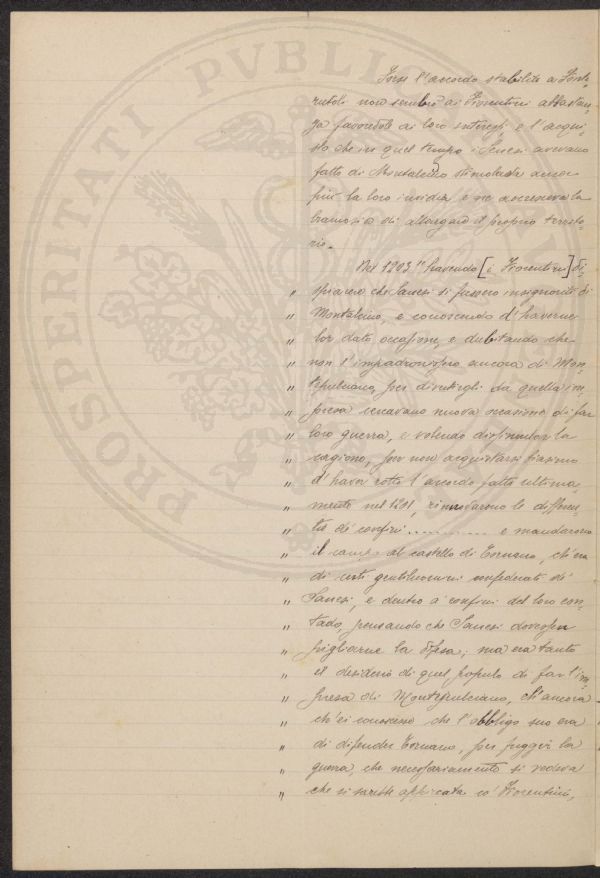 PROSPERITATI PUBLICAE
Forse l'accordo stabilito a Fonte-
rutoli non sembrò ai Fiorentini abbastan-
za favorevole ai loro interessi, e l'acqui-
sto che in quel tempo i Senesi avevano
fatto di Montalcino stimolava ancor
più la loro invidia e ne accresceva la
bramosia di allargare il proprio territo-
rio.
Nel 1203 "havendo [i Fiorentini] di-
" spiacere che Sanesi si fussero insignoriti di
" Montalcino, e conoscendo d'haverne
" lor dato occasione, e dubitando che
" non s'impadronissero ancora di Mon-
" tepulciano, per divertirgli da quella im-
" presa cercavano nuova occasione di far
" loro guerra, e volendo dissimular la
" cagione, per non acquistarsi biasimo
" d'haver rotto l'accordo fatto ultima-
" mente nel 1201, rinnovarono le differen-
" tie de' confini ............ e mandarono
" il campo al castello di Tornano, ch'era
" di certi gentiluomini confederati de'
" Sanesi, e dentro a' confini del loro con-
" tado, pensando che Sanesi dovesser
" pigliarne la difesa; ma era tanto
" il desiderio di quel popolo di far l'im-
" presa di Montepulciano, ch'ancora
" ch'ei conoscesse che l'obbligo suo era
" di difender Tornano, per fuggir la
" guerra che necessariamente si vedeva
" che si sarebbe appiccata co' Fiorentini,